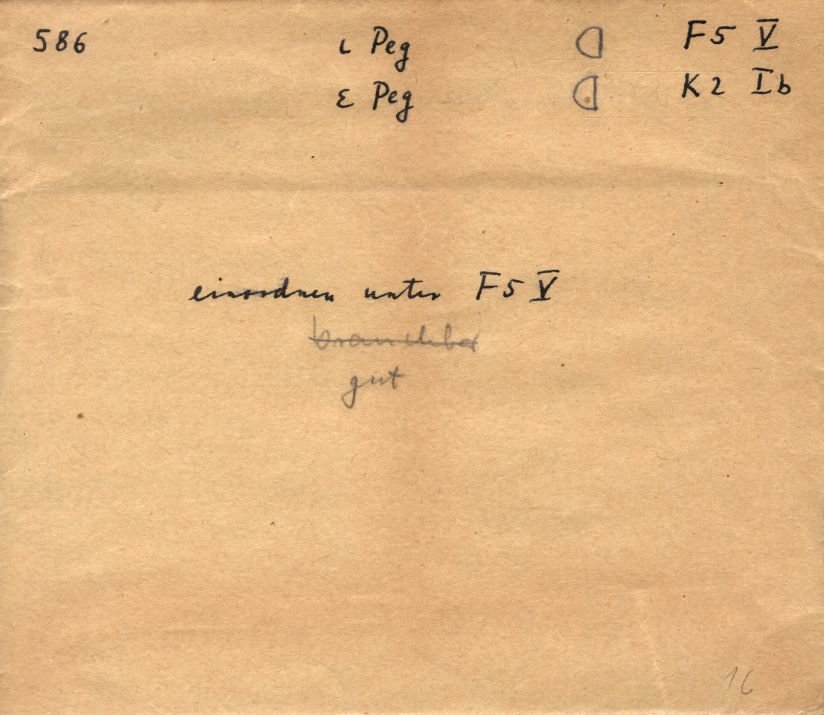 586 ι Peg D F5 V
ε Peg D K2 Ib
einordnen unter F5 V
brauchbar
gut
16